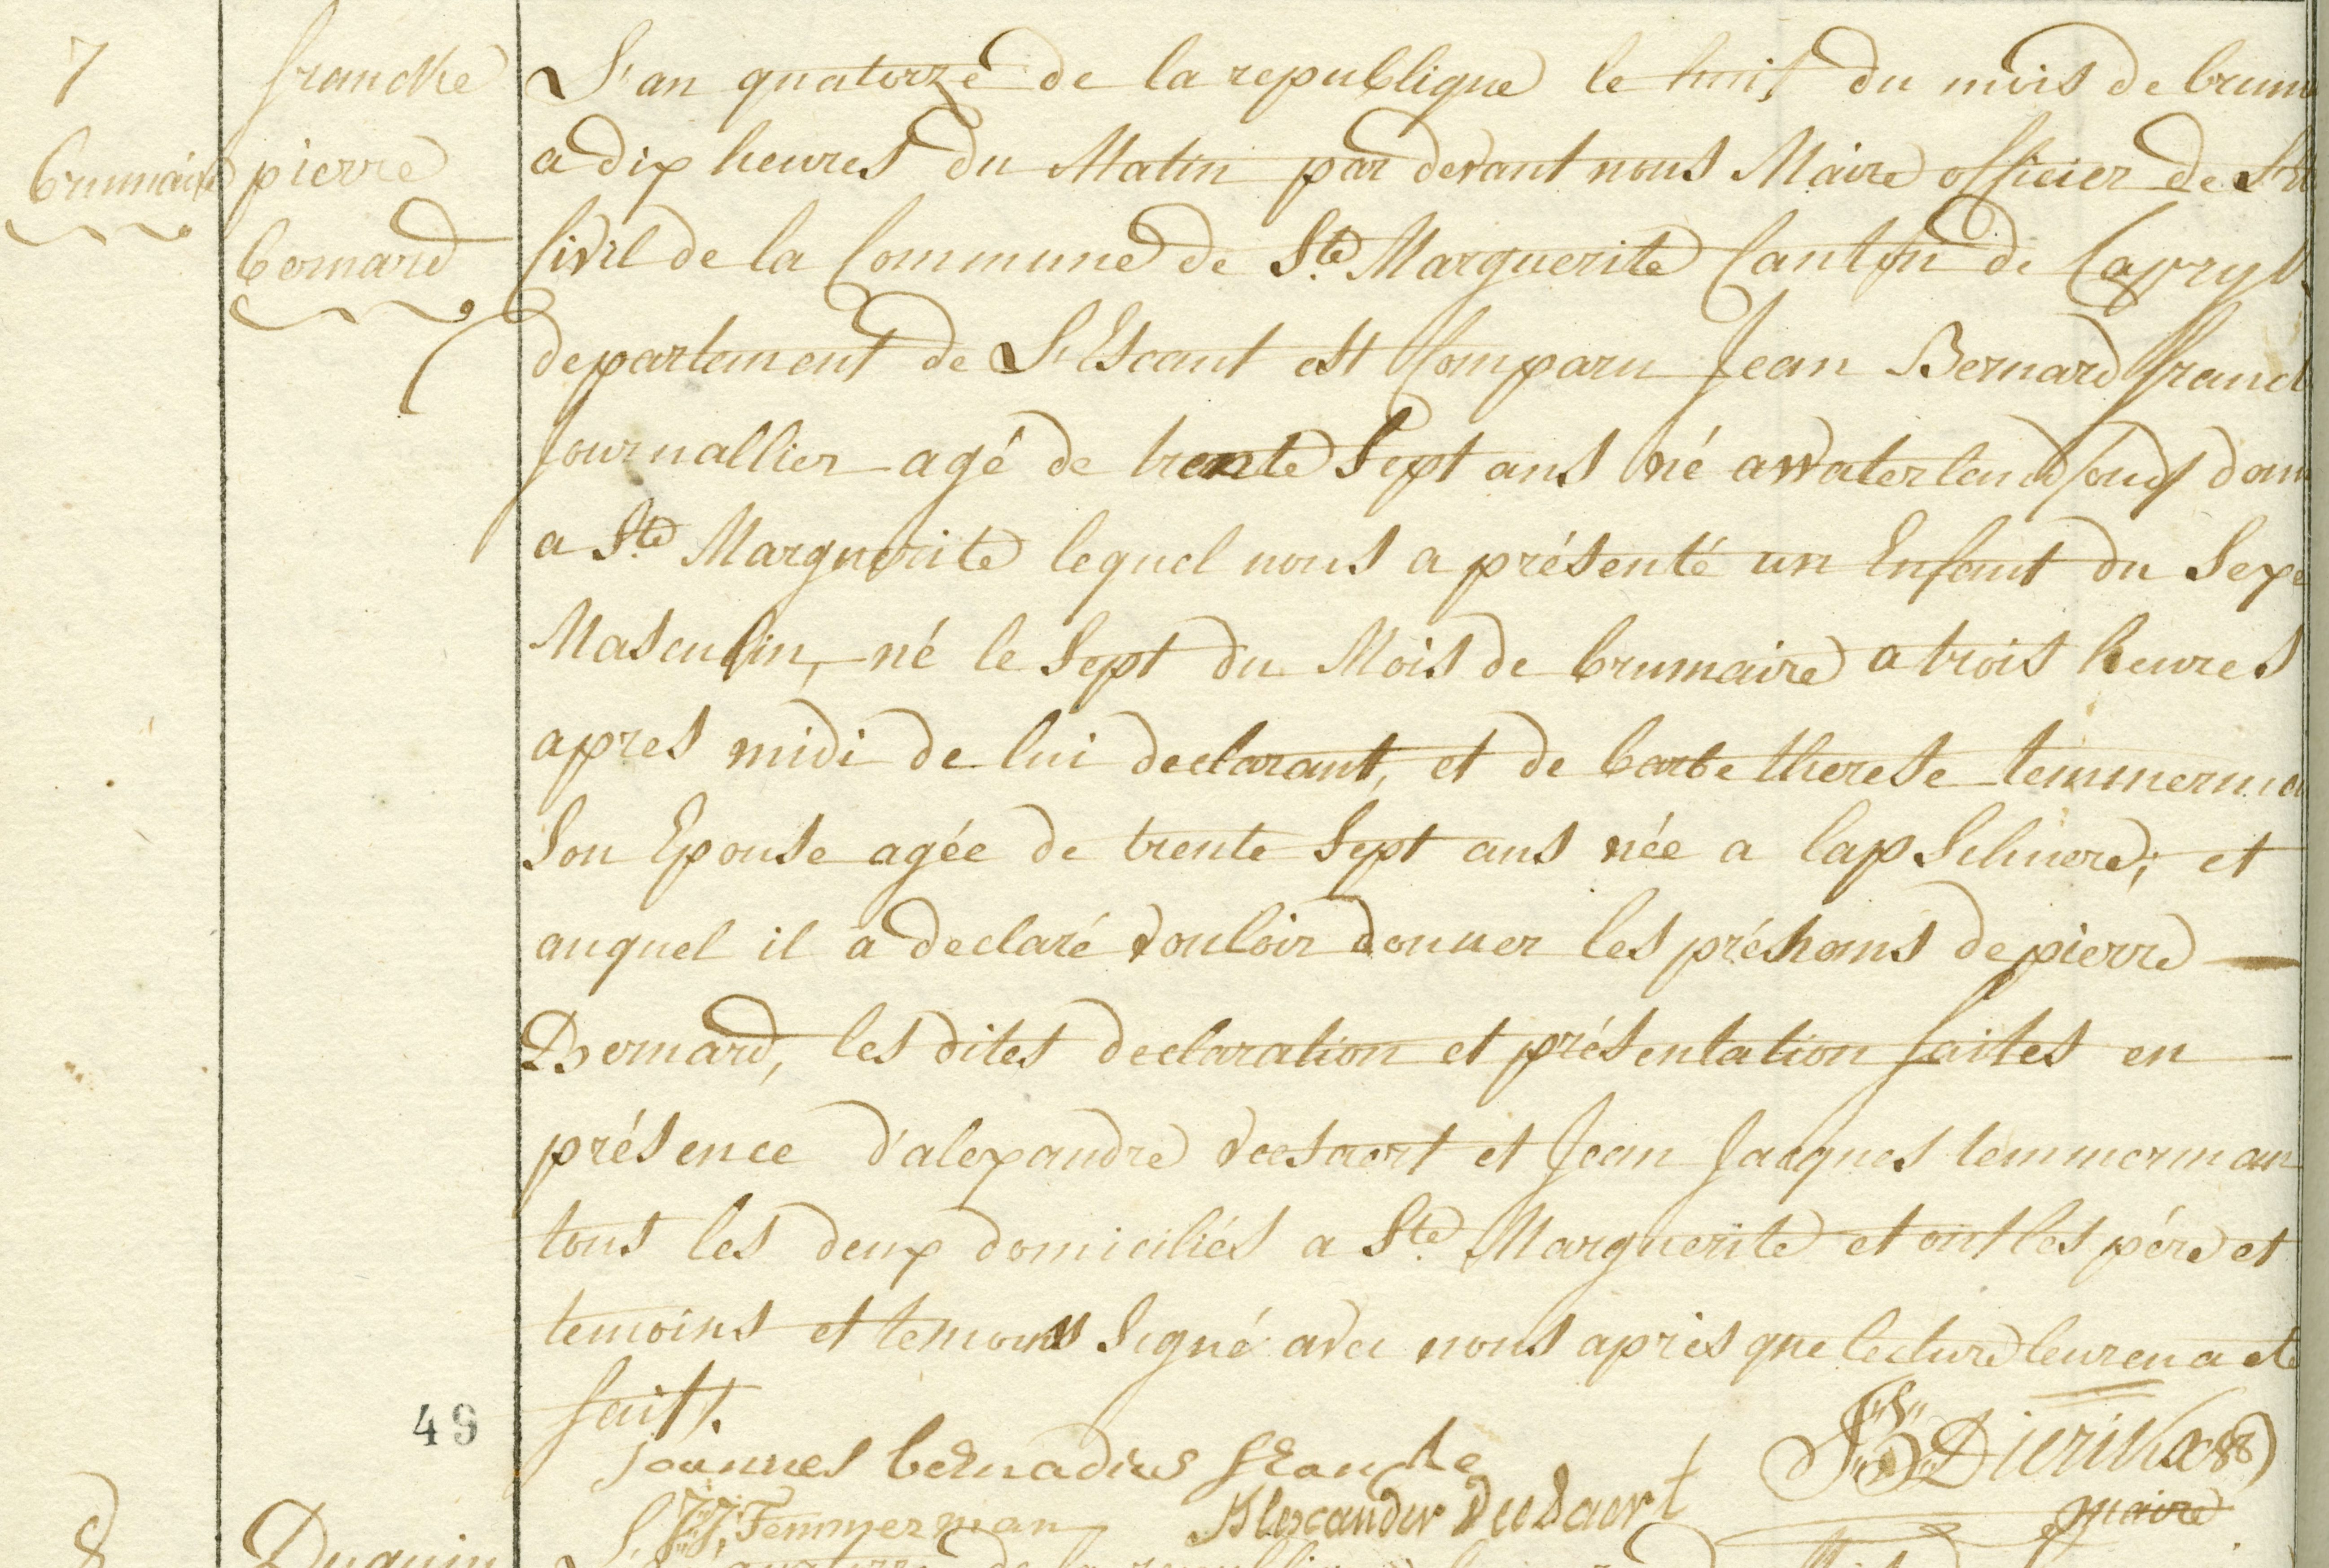 7
brumaire
francke
pierre
bernard
L'an quatorze de la republique le huit du mois de brum
a dix heures du Matin par devant nous Maire officier de
Civil de la Commune de Ste Marguerite Canton de Capryk
departement de L'Escaut est Comparu Jean Bernard franck
Journallier agé de trente Sept ans né a waterland dom
a Ste Marguerite lequel nous a présenté un Enfant du Sexe
Masculin, né le Sept du Mois de brumaire a trois heures
apres midi de lui declarant, et de barbe therese temmerma
Son Epouse agée de trente Sept ans née a lapSchure; et
auquel il a declaré vouloir donner les prénoms de pierre
Bernard, les dites declaration et présentation faites en
présence d'alexandre veesaert et Jean Jacques temmerman
tous les deux domiciliés a Ste Marguerite et ont les pére et
temoins et temoins Signé avec nous aprés que lecture leur en a eté
fait.
49
Joannes bernadus francke
J. J. Temmerman Alexander VeeSaert
maire
8
Duquin